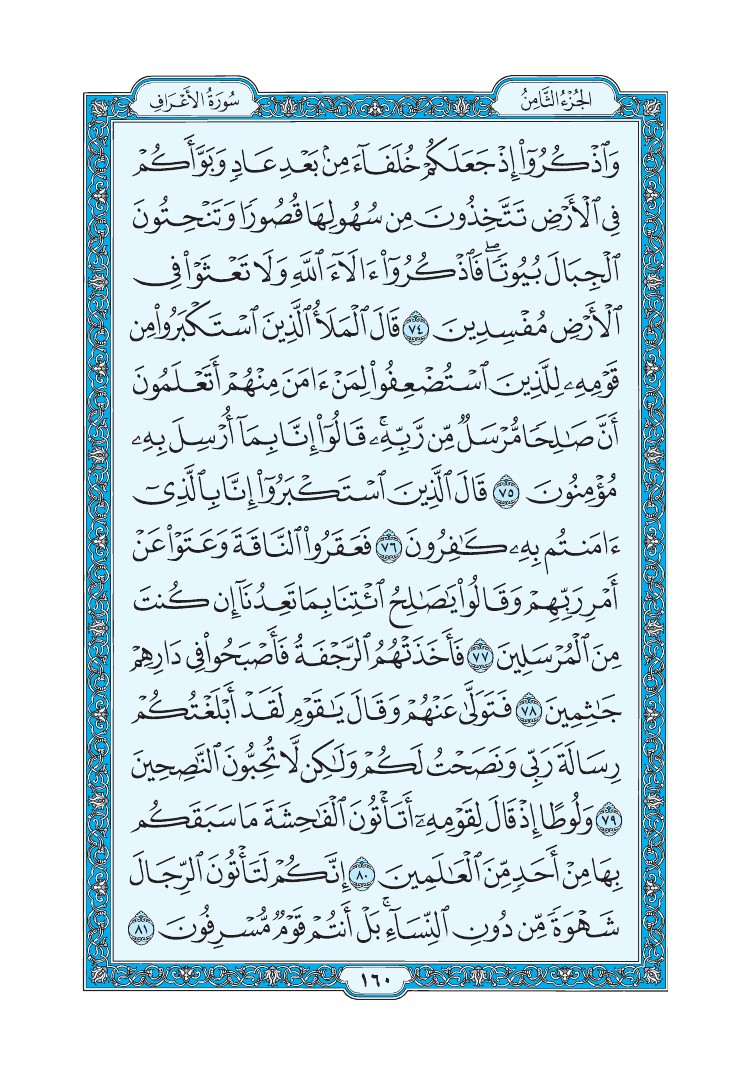 الجُزْءُ الثَّامِنُ
سُورَةُ الأَعْرَافِ
وَٱذْكُرُوٓا۟ إِذْ جَعَلَكُمْ خُلَفَآءَ مِنۢ بَعْدِ عَادٍ وَبَوَّأَكُمْ
فِى ٱلْأَرْضِ تَتَّخِذُونَ مِن سُهُولِهَا قُصُورًا وَتَنْحِتُونَ
ٱلْجِبَالَ بُيُوتًا ۖ فَٱذْكُرُوٓا۟ ءَالَآءَ ٱللَّهِ وَلَا تَعْثَوْا۟ فِى
ٱلْأَرْضِ مُفْسِدِينَ ٧٤ قَالَ ٱلْمَلَأُ ٱلَّذِينَ ٱسْتَكْبَرُوا۟ مِن
قَوْمِهِۦ لِلَّذِينَ ٱسْتُضْعِفُوا۟ لِمَنْ ءَامَنَ مِنْهُمْ أَتَعْلَمُونَ
أَنَّ صَٰلِحًا مُّرْسَلٌ مِّن رَّبِّهِۦ ۚ قَالُوٓا۟ إِنَّا بِمَآ أُرْسِلَ بِهِۦ
مُؤْمِنُونَ ٧٥ قَالَ ٱلَّذِينَ ٱسْتَكْبَرُوٓا۟ إِنَّا بِٱلَّذِىٓ
ءَامَنتُم بِهِۦ كَٰفِرُونَ ٧٦ فَعَقَرُوا۟ ٱلنَّاقَةَ وَعَتَوْا۟ عَنْ
أَمْرِ رَبِّهِمْ وَقَالُوا۟ يَٰصَٰلِحُ ٱئْتِنَا بِمَا تَعِدُنَآ إِن كُنتَ
مِنَ ٱلْمُرْسَلِينَ ٧٧ فَأَخَذَتْهُمُ ٱلرَّجْفَةُ فَأَصْبَحُوا۟ فِى دَارِهِمْ
جَٰثِمِينَ ٧٨ فَتَوَلَّىٰ عَنْهُمْ وَقَالَ يَٰقَوْمِ لَقَدْ أَبْلَغْتُكُمْ
رِسَالَةَ رَبِّى وَنَصَحْتُ لَكُمْ وَلَٰكِن لَّا تُحِبُّونَ ٱلنَّٰصِحِينَ
٧٩ وَلُوطًا إِذْ قَالَ لِقَوْمِهِۦٓ أَتَأْتُونَ ٱلْفَٰحِشَةَ مَا سَبَقَكُم
بِهَا مِنْ أَحَدٍ مِّنَ ٱلْعَٰلَمِينَ ٨٠ إِنَّكُمْ لَتَأْتُونَ ٱلرِّجَالَ
شَهْوَةً مِّن دُونِ ٱلنِّسَآءِ ۚ بَلْ أَنتُمْ قَوْمٌ مُّسْرِفُونَ ٨١
١٦٠